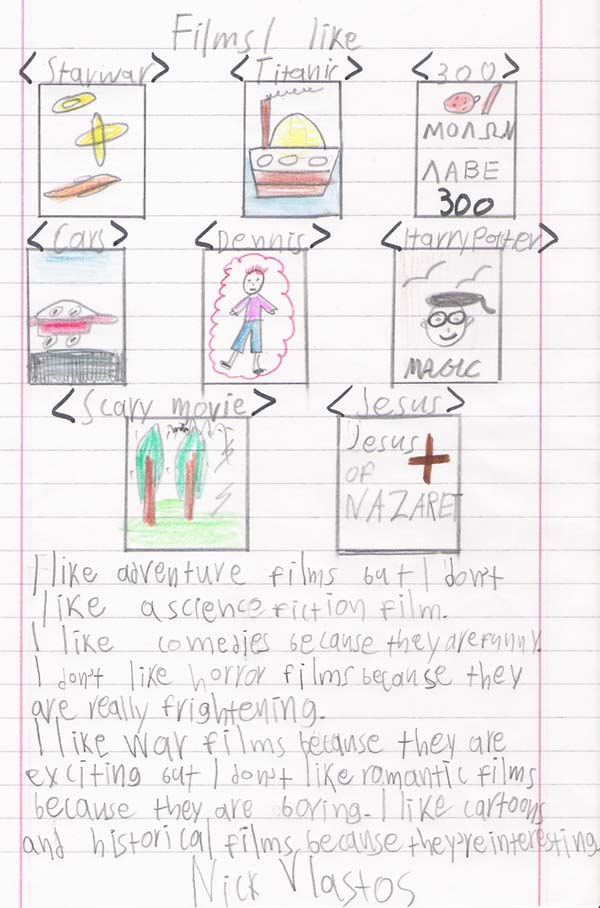 Films I like
<Starwar> <Titanic> <300>
ΜΟΛΩΝ
ΛΑΒΕ
300
<Cars> <Dennis> <HarryPotter>
MAGIC
<Scary movie> <Jesus>
Jesus
OF
NAZARET
I like adventure films but I don't
like a science fiction film.
I like comedies because they are funny.
I don't like horror films because they
are really frightening.
I like war films because they are
exciting but I don't like romantic films
because they are boring. I like cartoons
and historical films because they're interesting
Nick Vlastos